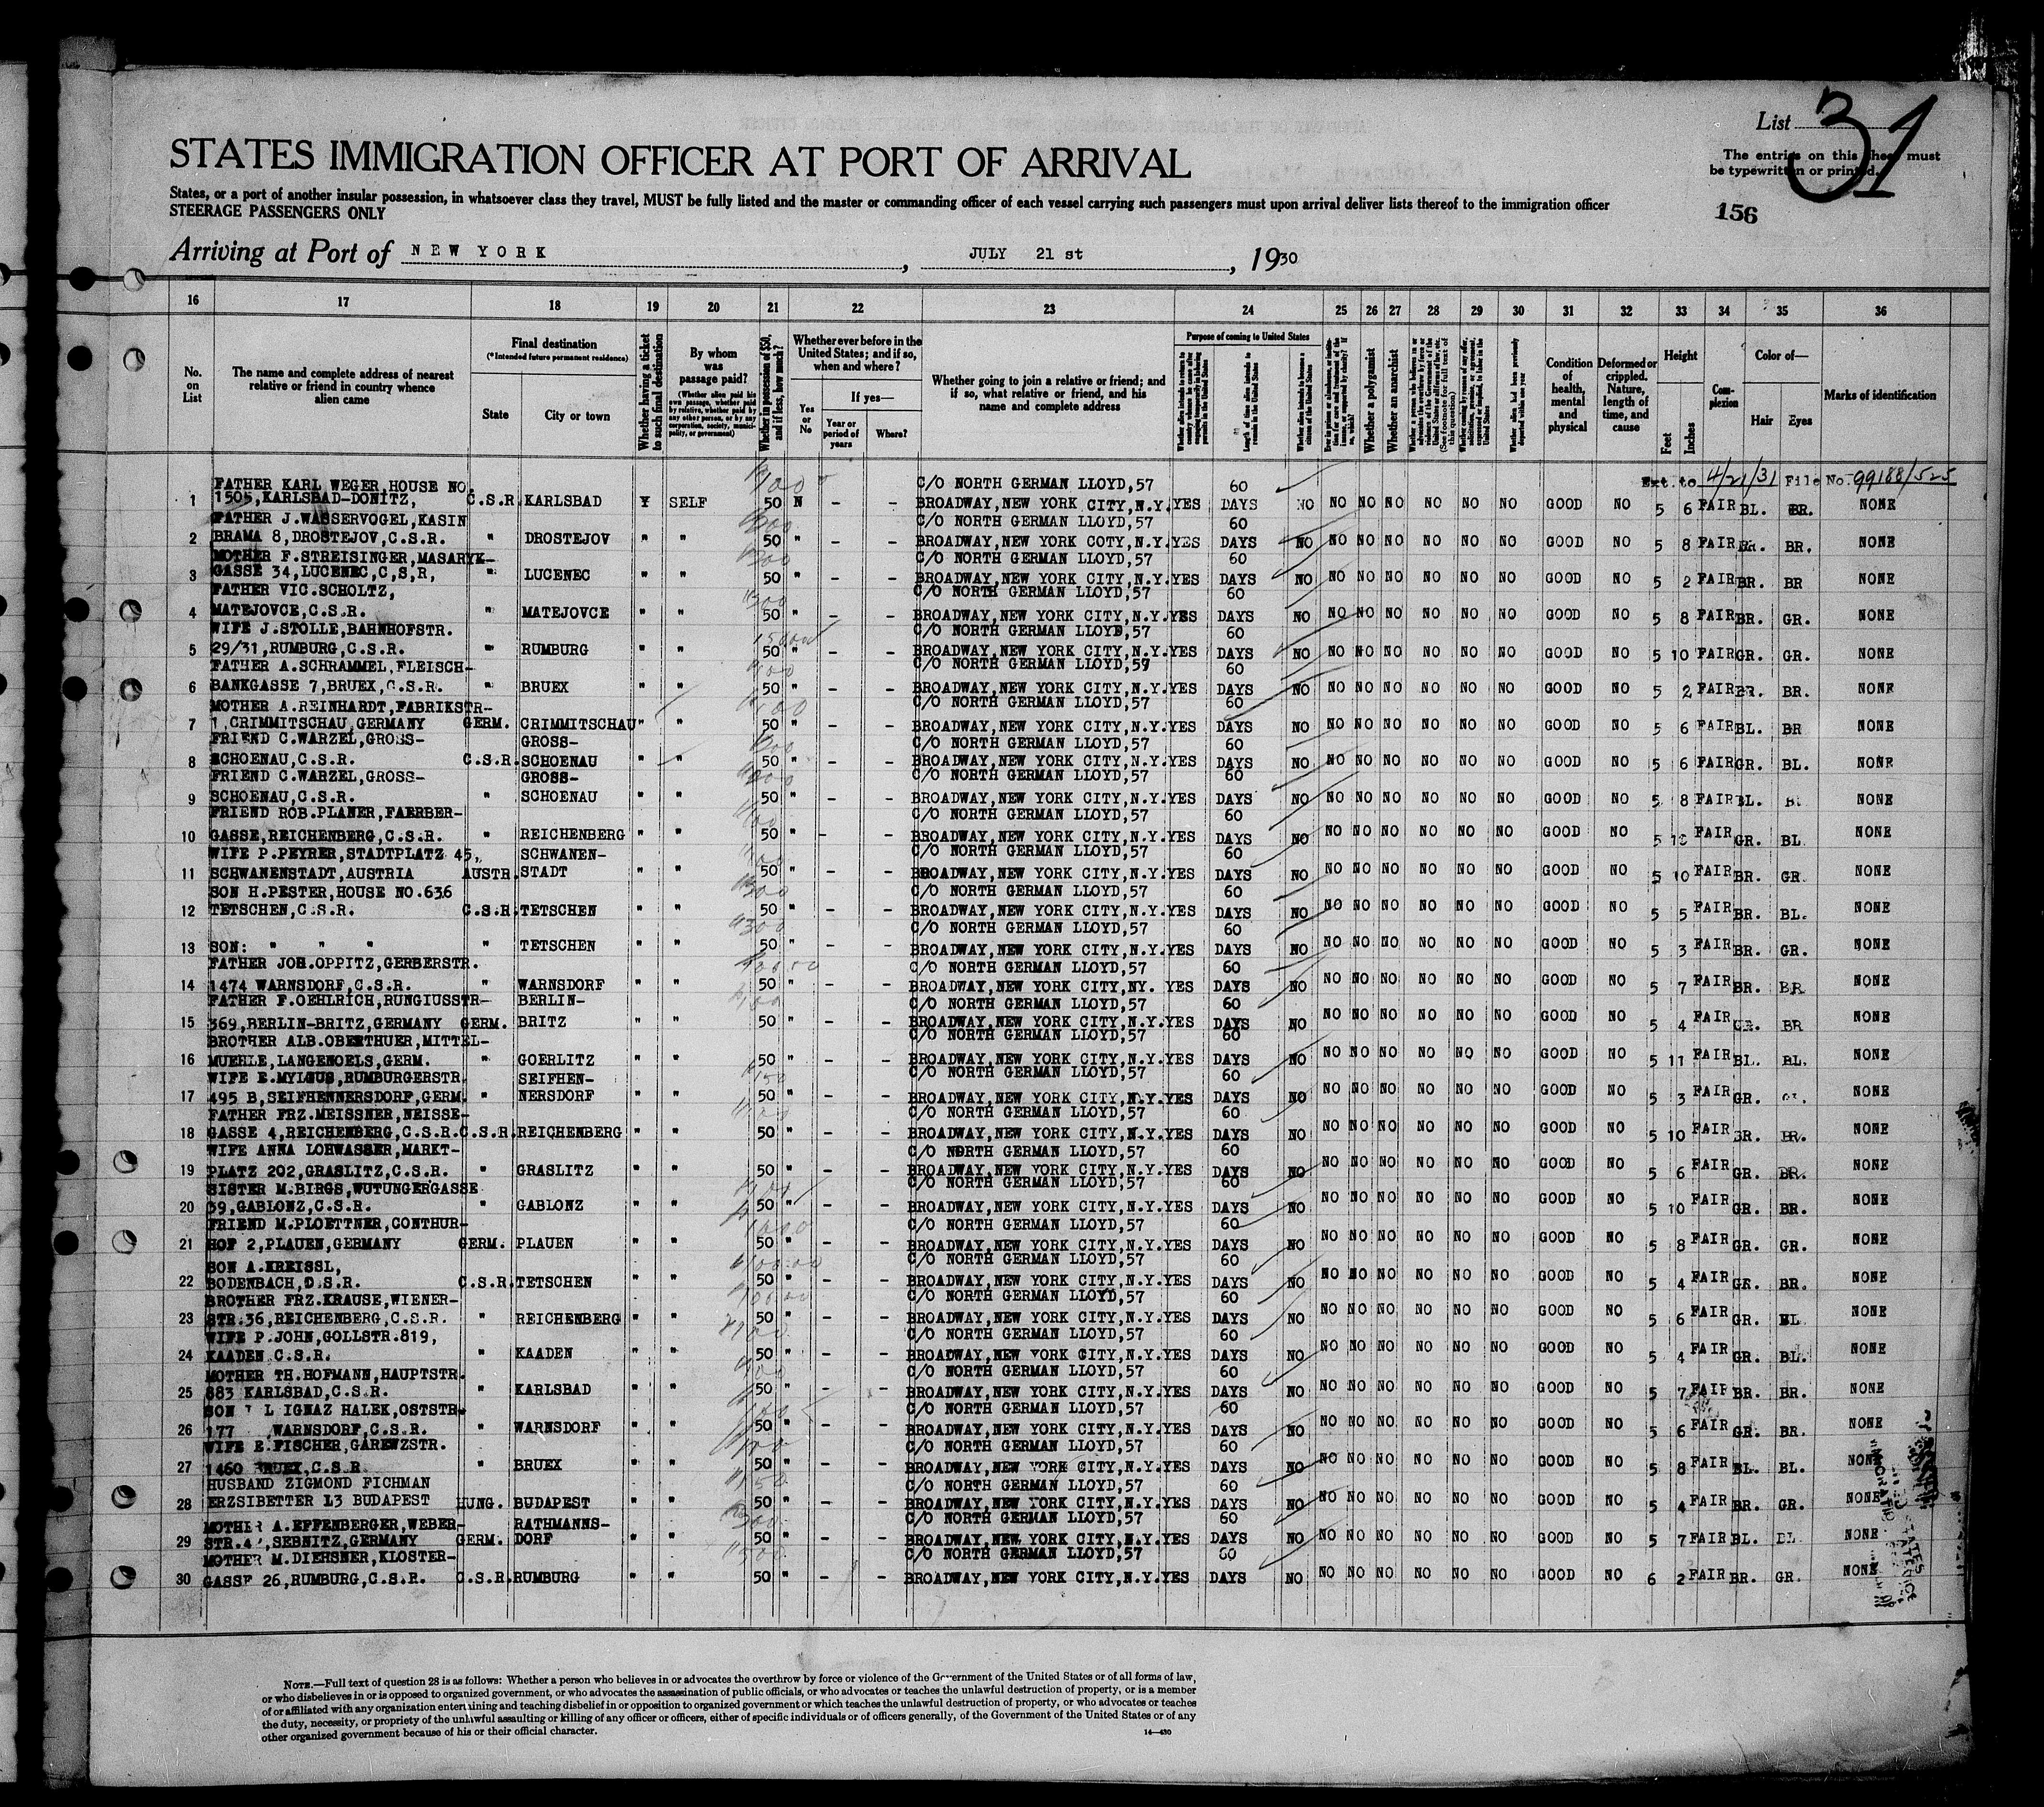 List 31
The entries on this sheet must
be typewritten or printed.
156
STATES IMMIGRATION OFFICER AT PORT OF ARRIVAL
States, or a port of another insular possession, in whatsoever class they travel, MUST be fully listed and the master or commanding officer of each vessel carrying such passengers must upon arrival deliver lists thereof to the immigration officer
STEERAGE PASSENGERS ONLY
Arriving at Port of NEW YORK, JULY 21 st, 1930
16 17 18 19 20 21 22 23 24 25 26 27 28 29 30 31 32 33 34 35 36
No. on List
The name and complete address of nearest relative or friend in country whence alien came
Final destination
(*Intended future permanent residence)
State
City or town
Whether having a ticket to such final destination
By whom was passage paid?
Whether in possession of $50, and if less, how much?
Whether ever before in the United States; and if so, when and where?
Yes or No
If yes—
Year or period of years
Where?
Whether going to join a relative or friend; and if so, what relative or friend, and his name and complete address
Purpose of coming to United States
Length of time alien intends to remain in the United States
Whether a polygamist
Whether an anarchist
Condition of health, mental and physical
Deformed or crippled. Nature, length of time, and cause
Height
Feet
Inches
Complexion
Color of—
Hair
Eyes
Marks of identification
Ext. to 4/21/31 File No. 99188/525
FATHER KARL WEGER,HOUSE NO. C/O NORTH GERMAN LLOYD,57 60
1 1505,KARLSBAD-DONITZ, C.S.R. KARLSBAD Y SELF 50 N - - BROADWAY,NEW YORK CITY,N.Y. YES DAYS NO NO NO NO NO NO NO GOOD NO 5 6 FAIR BL. BR. NONE
FATHER J.WASSERVOGEL,KASIN C/O NORTH GERMAN LLOYD,57 60
2 BRAMA 8,DROSTEJOV,C.S.R. " DROSTEJOV " " 50 " - - BROADWAY,NEW YORK COTY,N.Y. YES DAYS NO NO NO NO NO NO NO GOOD NO 5 8 FAIR BR. BR. NONE
MOTHER F.STREISINGER,MASARYK- C/O NORTH GERMAN LLOYD,57 60
3 GASSE 34,LUCENEC,C,S,R, " LUCENEC " " 50 " - - BROADWAY,NEW YORK CITY,N.Y. YES DAYS NO NO NO NO NO NO NO GOOD NO 5 2 FAIR BR. BR NONE
FATHER VIC.SCHOLTZ, C/O NORTH GERMAN LLOYD,57 60
4 MATEJOVCE,C.S.R. " MATEJOVCE " " 50 " - - BROADWAY,NEW YORK CITY,N.Y. YES DAYS NO NO NO NO NO NO NO GOOD NO 5 8 FAIR BR. GR. NONE
WIFE J.STOLLE,BAHNHOFSTR. C/O NORTH GERMAN LLOYD,57 60
5 29/31,RUMBURG,C.S.R. " RUMBURG " " 50 " - - BROADWAY,NEW YORK CITY,N.Y. YES DAYS NO NO NO NO NO NO NO GOOD NO 5 10 FAIR GR. GR. NONE
FATHER A.SCHRAMMEL,FLEISCH- C/O NORTH GERMAN LLOYD,57 60
6 BANKGASSE 7,BRUEX,C.S.R. " BRUEX " " 50 " - - BROADWAY,NEW YORK CITY,N.Y. YES DAYS NO NO NO NO NO NO NO GOOD NO 5 2 FAIR BR. BR. NONE
MOTHER A.REINHARDT,FABRIKSTR- C/O NORTH GERMAN LLOYD,57 60
7 1,CRIMMITSCHAU,GERMANY GERM. CRIMMITSCHAU " " 50 " - - BROADWAY,NEW YORK CITY,N.Y. YES DAYS NO NO NO NO NO NO NO GOOD NO 5 6 FAIR BL. BR NONE
FRIEND C.WARZEL,GROSS- GROSS- C/O NORTH GERMAN LLOYD,57 60
8 SCHOENAU,C.S.R. C.S.R. SCHOENAU " " 50 " - - BROADWAY,NEW YORK CITY,N.Y. YES DAYS NO NO NO NO NO NO NO GOOD NO 5 6 FAIR GR. BL. NONE
FRIEND C.WARZEL,GROSS- GROSS- C/O NORTH GERMAN LLOYD,57 60
9 SCHOENAU,C.S.R. " SCHOENAU " " 50 " - - BROADWAY,NEW YORK CITY,N.Y. YES DAYS NO NO NO NO NO NO NO GOOD NO 5 8 FAIR BL. NONE
FRIEND ROB.PLANER,FAERBER- C/O NORTH GERMAN LLOYD,57 60
10 GASSE,REICHENBERG,C.S.R. " REICHENBERG " " 50 " - - BROADWAY,NEW YORK CITY,N.Y. YES DAYS NO NO NO NO NO NO NO GOOD NO 5 FAIR GR. BL. NONE
WIFE P.PEYRER,STADTPLATZ 45, SCHWANEN- C/O NORTH GERMAN LLOYD,57 60
11 SCHWANENSTADT,AUSTRIA AUSTR. STADT " " 50 " - - BROADWAY,NEW YORK CITY,N.Y. YES DAYS NO NO NO NO NO NO NO GOOD NO 5 10 FAIR BR. GR. NONE
SON H.PESTER,HOUSE NO.636 C/O NORTH GERMAN LLOYD,57 60
12 TETSCHEN,C.S.R. C.S.R. TETSCHEN " " 50 " - - BROADWAY,NEW YORK CITY,N.Y. YES DAYS NO NO NO NO NO NO NO GOOD NO 5 5 FAIR BR. BL. NONE
C/O NORTH GERMAN LLOYD,57 60
13 SON: " " " " TETSCHEN " " 50 " - - BROADWAY,NEW YORK CITY,N.Y. YES DAYS NO NO NO NO NO NO NO GOOD NO 5 3 FAIR BR. GR. NONE
FATHER JOH.OPPITZ,GERBERSTR. C/O NORTH GERMAN LLOYD,57 60
14 1474 WARNSDORF,C.S.R. " WARNSDORF " " 50 " - - BROADWAY,NEW YORK CITY,NY. YES DAYS NO NO NO NO NO NO NO GOOD NO 5 7 FAIR BR. BR NONE
FATHER F.OEHLRICH,RUNGIUSSTR- BERLIN- C/O NORTH GERMAN LLOYD,57 60
15 369,BERLIN-BRITZ,GERMANY GERM. BRITZ " " 50 " - - BROADWAY,NEW YORK CITY,N.Y. YES DAYS NO NO NO NO NO NO NO GOOD NO 5 4 FAIR GR. BR NONE
BROTHER ALB.OBERTHUER,MITTEL- C/O NORTH GERMAN LLOYD,57 60
16 MUEHLE,LANGENOELS,GERM. " GOERLITZ " " 50 " - - BROADWAY,NEW YORK CITY,N.Y. YES DAYS NO NO NO NO NO NO NO GOOD NO 5 11 FAIR BL. BL. NONE
WIFE E.MYLIUS,RUMBURGERSTR. SEIFHEN- C/O NORTH GERMAN LLOYD,57 60
17 495 B,SEIFHENNERSDORF,GERM. " NERSDORF " " 50 " - - BROADWAY,NEW YORK CITY,N.Y. YES DAYS NO NO NO NO NO NO NO GOOD NO 5 3 FAIR GR. NONE
FATHER FRZ.MEISSNER,NEISSE- C/O NORTH GERMAN LLOYD,57 60
18 GASSE 4,REICHENBERG,C.S.R. C.S.R. REICHENBERG " " 50 " - - BROADWAY,NEW YORK CITY,N.Y. YES DAYS NO NO NO NO NO NO NO GOOD NO 5 10 FAIR BR. BR. NONE
WIFE ANNA LOHWASSER,MARKT- C/O NORTH GERMAN LLOYD,57 60
19 PLATZ 202,GRASLITZ,C.S.R. " GRASLITZ " " 50 " - - BROADWAY,NEW YORK CITY,N.Y. YES DAYS NO NO NO NO NO NO NO GOOD NO 5 6 FAIR GR. BR. NONE
SISTER M.BIRGS,WUTUNGERGASSE C/O NORTH GERMAN LLOYD,57 60
20 39,GABLONZ,C.S.R. " GABLONZ " " 50 " - - BROADWAY,NEW YORK CITY,N.Y. YES DAYS NO NO NO NO NO NO NO GOOD NO 5 10 FAIR GR. BR. NONE
FRIEND M.PLOETTNER,CONTHUR- C/O NORTH GERMAN LLOYD,57 60
21 HOF 2,PLAUEN,GERMANY GERM. PLAUEN " " 50 " - - BROADWAY,NEW YORK CITY,N.Y. YES DAYS NO NO NO NO NO NO NO GOOD NO 5 8 FAIR GR. GR. NONE
SON A.KREISSL, C/O NORTH GERMAN LLOYD,57 60
22 BODENBACH,C.S.R. C.S.R. TETSCHEN " " 50 " - - BROADWAY,NEW YORK CITY,N.Y. YES DAYS NO NO NO NO NO NO NO GOOD NO 5 4 FAIR GR. BR. NONE
BROTHER FRZ.KRAUSE,WIENER- C/O NORTH GERMAN LLOYD,57 60
23 STR.36,REICHENBERG,C.S.R. " REICHENBERG " " 50 " - - BROADWAY,NEW YORK CITY,N.Y. YES DAYS NO NO NO NO NO NO NO GOOD NO 5 6 FAIR GR. BL NONE
WIFE P.JOHN,GOLLSTR.819, C/O NORTH GERMAN LLOYD,57 60
24 KAADEN C.S.R. " KAADEN " " 50 " - - BROADWAY,NEW YORK CITY,N.Y. YES DAYS NO NO NO NO NO NO NO GOOD NO 5 4 FAIR GR. BL. NONE
MOTHER TH.HOFMANN,HAUPTSTR. C/O NORTH GERMAN LLOYD,57 60
25 883 KARLSBAD,C.S.R. " KARLSBAD " " 50 " - - BROADWAY,NEW YORK CITY,N.Y. YES DAYS NO NO NO NO NO NO NO GOOD NO 5 7 FAIR BR. BR. NONE
SON L IGNAZ HALEK,OSTSTR. C/O NORTH GERMAN LLOYD,57 60
26 177 ,WARNSDORF,C.S.R. " WARNSDORF " " 50 " - - BROADWAY,NEW YORK CITY,N.Y. YES DAYS NO NO NO NO NO NO NO GOOD NO 5 6 FAIR GR. BR. NONE
WIFE E.FISCHER,GAREWZSTR. C/O NORTH GERMAN LLOYD,57 60
27 1460 BRUEX,C.S.R. " BRUEX " " 50 " - - BROADWAY,NEW YORK CITY,N.Y. YES DAYS NO NO NO NO NO NO NO GOOD NO 5 8 FAIR BL. BL. NONE
HUSBAND ZIGMOND FICHMAN C/O NORTH GERMAN LLOYD,57 60
28 ERZSIBETTER 13 BUDAPEST HUNG. BUDAPEST " " 50 " - - BROADWAY,NEW YORK CITY,N.Y. YES DAYS NO NO NO NO NO NO NO GOOD NO 5 4 FAIR BR. GR. NONE
MOTHER A.EFFENBERGER,WEBER- RATHMANNS- C/O NORTH GERMAN LLOYD,57 60
29 SEBNITZ,GERMANY GERM. DORF " " 50 " - - BROADWAY,NEW YORK CITY,N.Y. YES DAYS NO NO NO NO NO NO NO GOOD NO 5 7 FAIR BL. BL. NONE
MOTHER M.DIEHSNER,KLOSTER- C/O NORTH GERMAN LLOYD,57 60
30 GASSE 26,RUMBURG,C.S.R. C.S.R. RUMBURG " " 50 " - - BROADWAY,NEW YORK CITY,N.Y. YES DAYS NO NO NO NO NO NO NO GOOD NO 6 2 FAIR BR. GR. NONE
NOTE.—Full text of question 28 is as follows: Whether a person who believes in or advocates the overthrow by force or violence of the Government of the United States or of all forms of law,
or who disbelieves in or is opposed to organized government, or who advocates the assassination of public officials, or who advocates or teaches the unlawful destruction of property, or is a member
of or affiliated with any organization entertaining and teaching disbelief in or opposition to organized government or which teaches the unlawful destruction of property, or who advocates or teaches
the duty, necessity, or propriety of the unlawful assaulting or killing of any officer or officers, either of specific individuals or of officers generally, of the Government of the United States or of any
other organized government because of his or their official character.
14—430